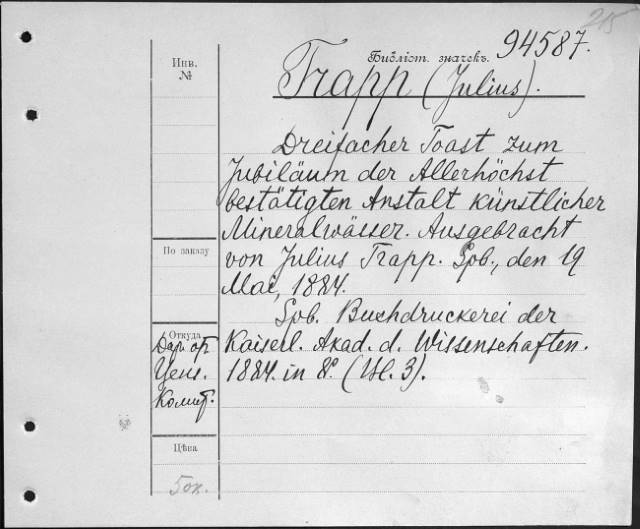 215
Библіот. значекъ.
94587.
Инв.
№
Trapp (Julius).
Dreifacher Toast zum
Jubiläum der Allerhöchst
bestätigten Anstalt künstlicher
Mineralwässer. Ausgebracht
По заказу
von Julius Trapp. Spb., den 19
Mai, 1884.
Spb. Buchdruckerei der
Откуда
Дар от
Kaiserl. Akad. d. Wissenschaften.
Ценз.
1884. in 8º. (Ul. 3).
Комит.
Цѣна
50к.